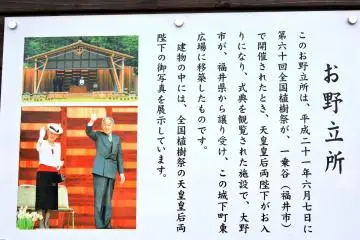 お野立所
このお野立所は、平成二十一年六月七日に
第六十回全国植樹祭が、一乗谷（福井市）
で開催されたとき、天皇皇后両陛下がお入
りになり、式典を観覧された施設で、大野
市が、福井県から譲り受け、この城下町東
広場に移築したものです。
建物の中には、全国植樹祭の天皇皇后両
陛下の御写真を展示しています。